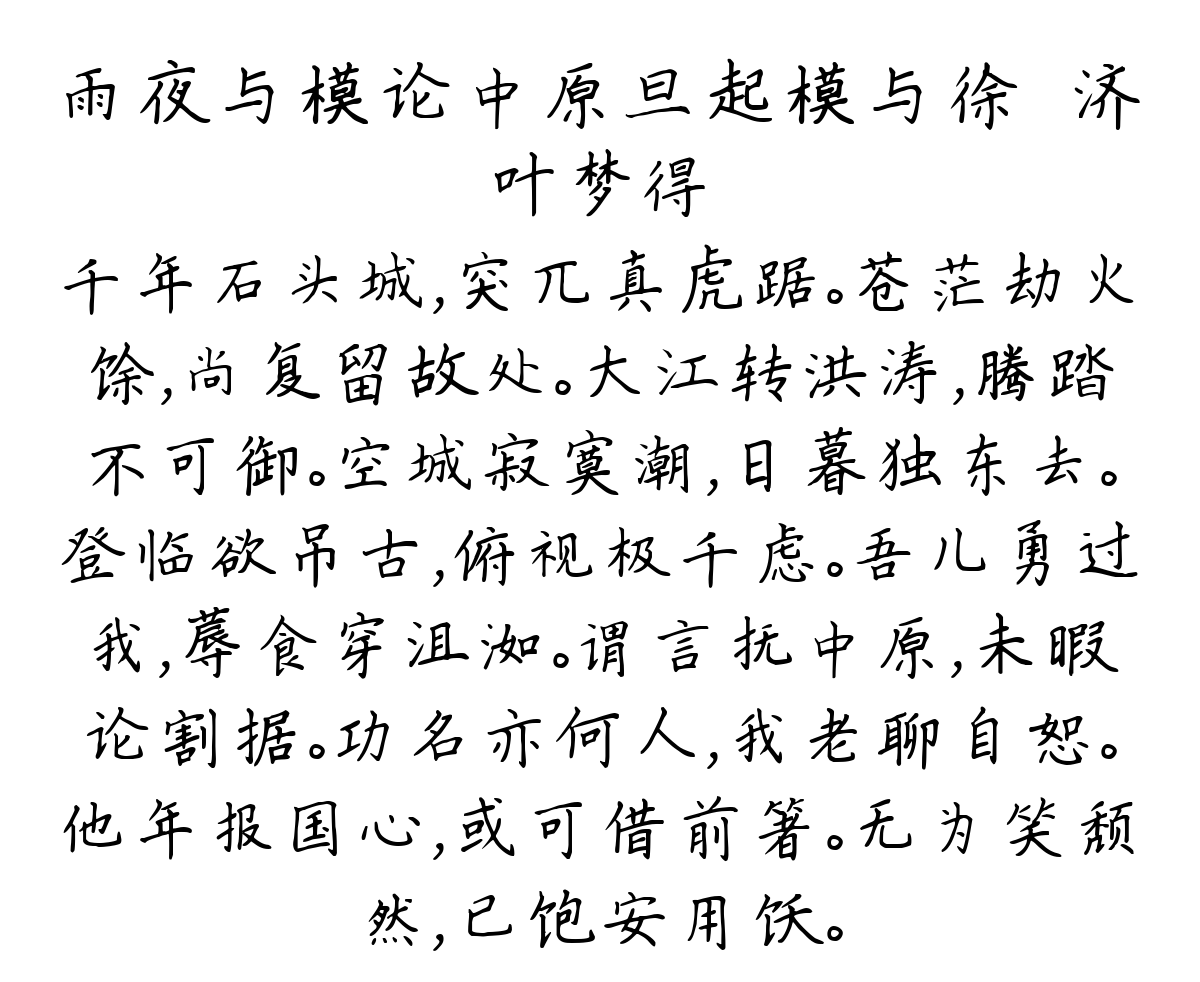 雨夜与模论中原旦起模与徐 济
叶梦得
千年石头城,突兀真虎踞。苍茫劫火
馀,尚复留故处。大江转洪涛,腾踏
不可御。空城寂寞潮,日暮独东去。
登临欲吊古,俯视极千虑。吾儿勇过
我,蓐食穿沮洳。谓言抚中原,未暇
论割据。功名亦何人,我老聊自恕。
他年报国心,或可借前箸。无为笑颓
然,已饱安用饫。